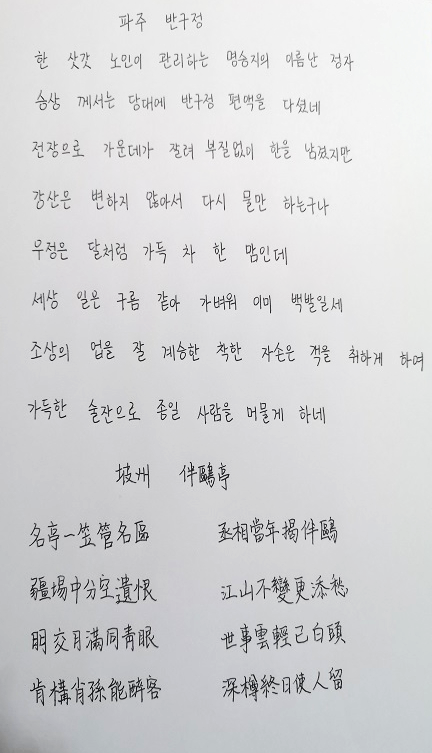 파주 반구정
한 삿갓 노인이 관리하는 명승지의 이름난 정자
승상 께서는 당대에 반구정 편액을 다셨네
전장으로 가운데가 잘려 부질없이 한을 남겼지만
강산은 변하지 않아서 다시 물만 하는구나
우정은 달처럼 가득 차 한 맘인데
세상 일은 구름 같아 가벼워 이미 백발일세
조상의 업을 잘 계승한 착한 자손은 객을 취하게 하여
가득한 술잔으로 종일 사람을 머물게 하네
坡州 伴鷗亭
名亭一笠管名區 丞相當年揭伴鷗
疆場中分空遺恨 江山不變更添愁
明交月滿同靑眼 世事雲輕已白頭
肯構肖孫能醉客 深樽終日使人留